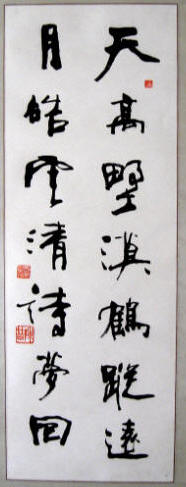 天高墅漠鶴蹤遠
月皓雲清詩夢回